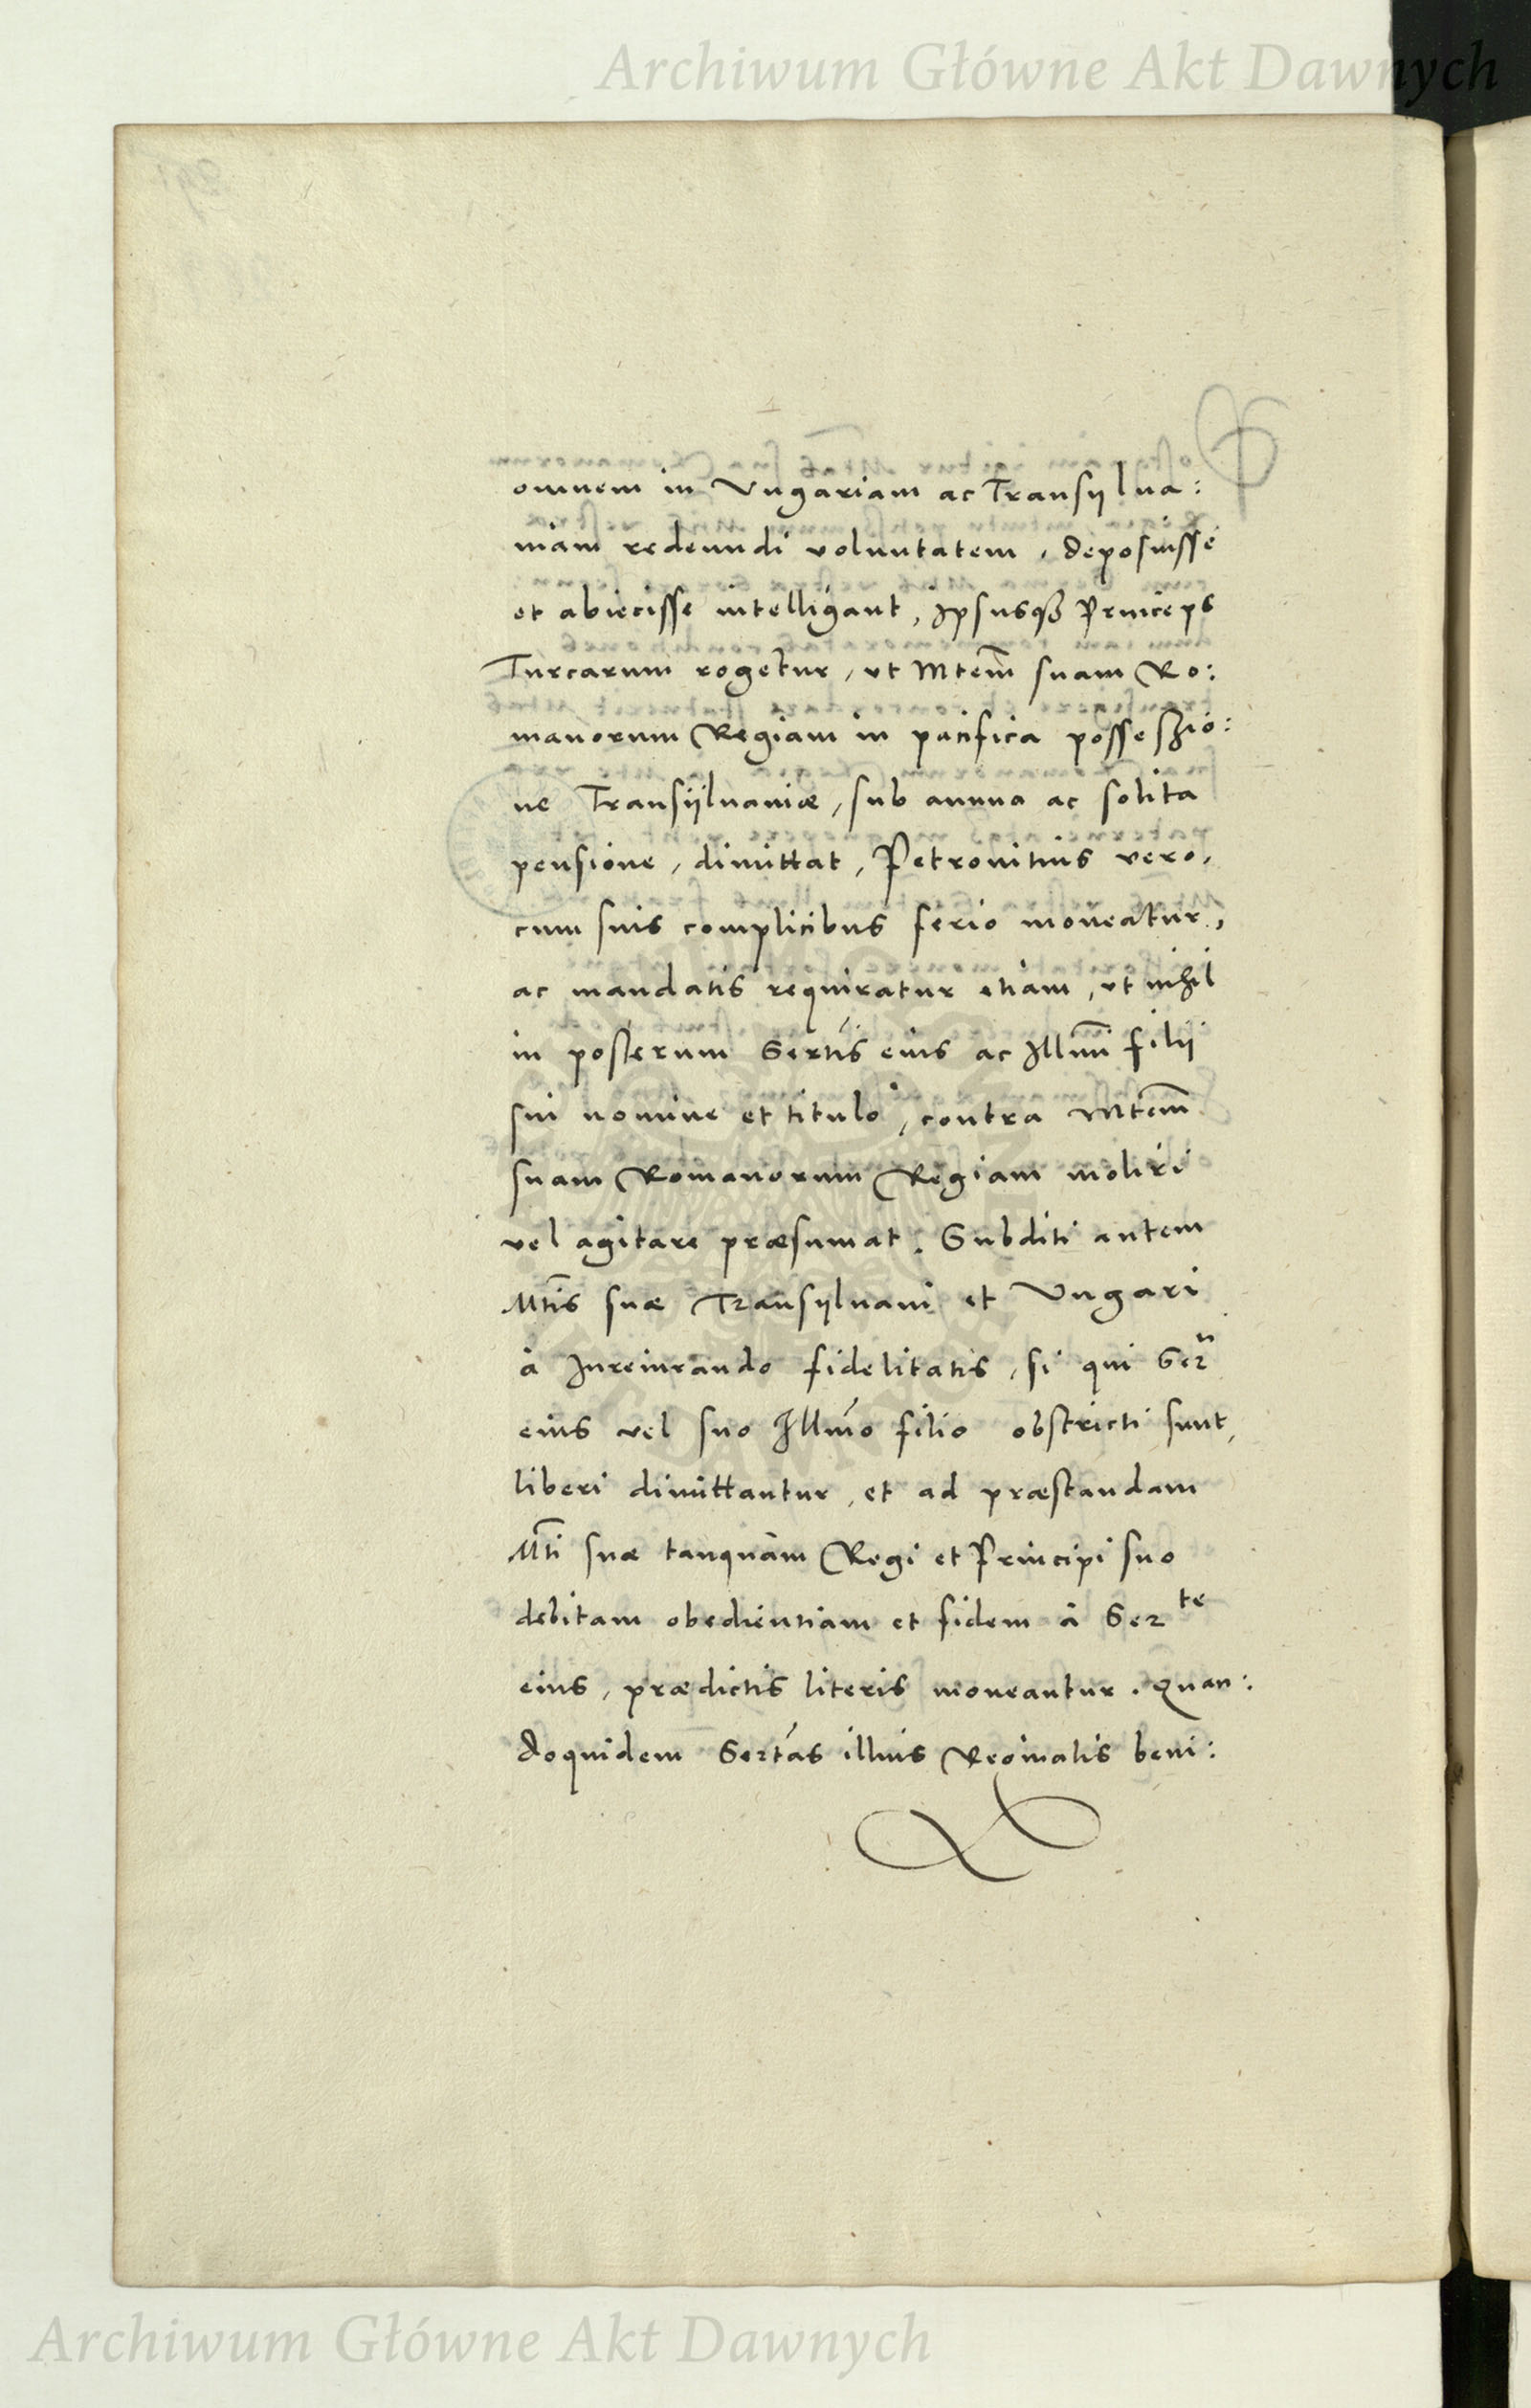 Archiwum Główne Akt Dawnych
omnem in Vngariam ac Transylua:
niam redeundi voluntatem, deposuisse
et abiecisse intelligant, Ipsusqʒ Princeps
Turcarum rogetur, vt Mtem̃ suam Ro:
manorum Regiam in pacifica possessio:
ne Transÿluaniæ, sub annua ac solita
pensione, dimittat, Petrouitius vero,
cum suis complicibus serio moneatur,
ac mandatis requiratur etiam, vt nihil
in posterum Sertis eius ac Illmi filij
sui nomine et titulo, contra Mtem̃
suam Romanorum Regiam moliri
vel agitare præsumat. Subditi autem
Mtis suæ Transyluani et Vngari
à Iureiurando fidelitatis, si qui Ser
eius vel suo Illmo filio obstricti sunt,
liberi dimittantur, et ad præstandam
Mti suæ tanquam Regi et Principi suo
debitam obedientiam et fidem à Ser te
eius, prædictis literis moneantur. Quan:
doquidem Sertas illius Reginalis beni:
Archiwum Główne Akt Dawnych